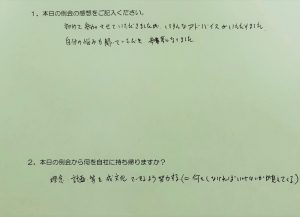 1、本日の例会の感想をご記入ください。
初めて参加させていただきましたが、いろんなアドバイスがいただけました
自分の悩みも聞いてもらえ 参考になりました
2、本日の例会から何を自社に持ち帰りますか？
理念 計画 等を成文化できるよう努力する(=何をしなければいけないか見えてくる)